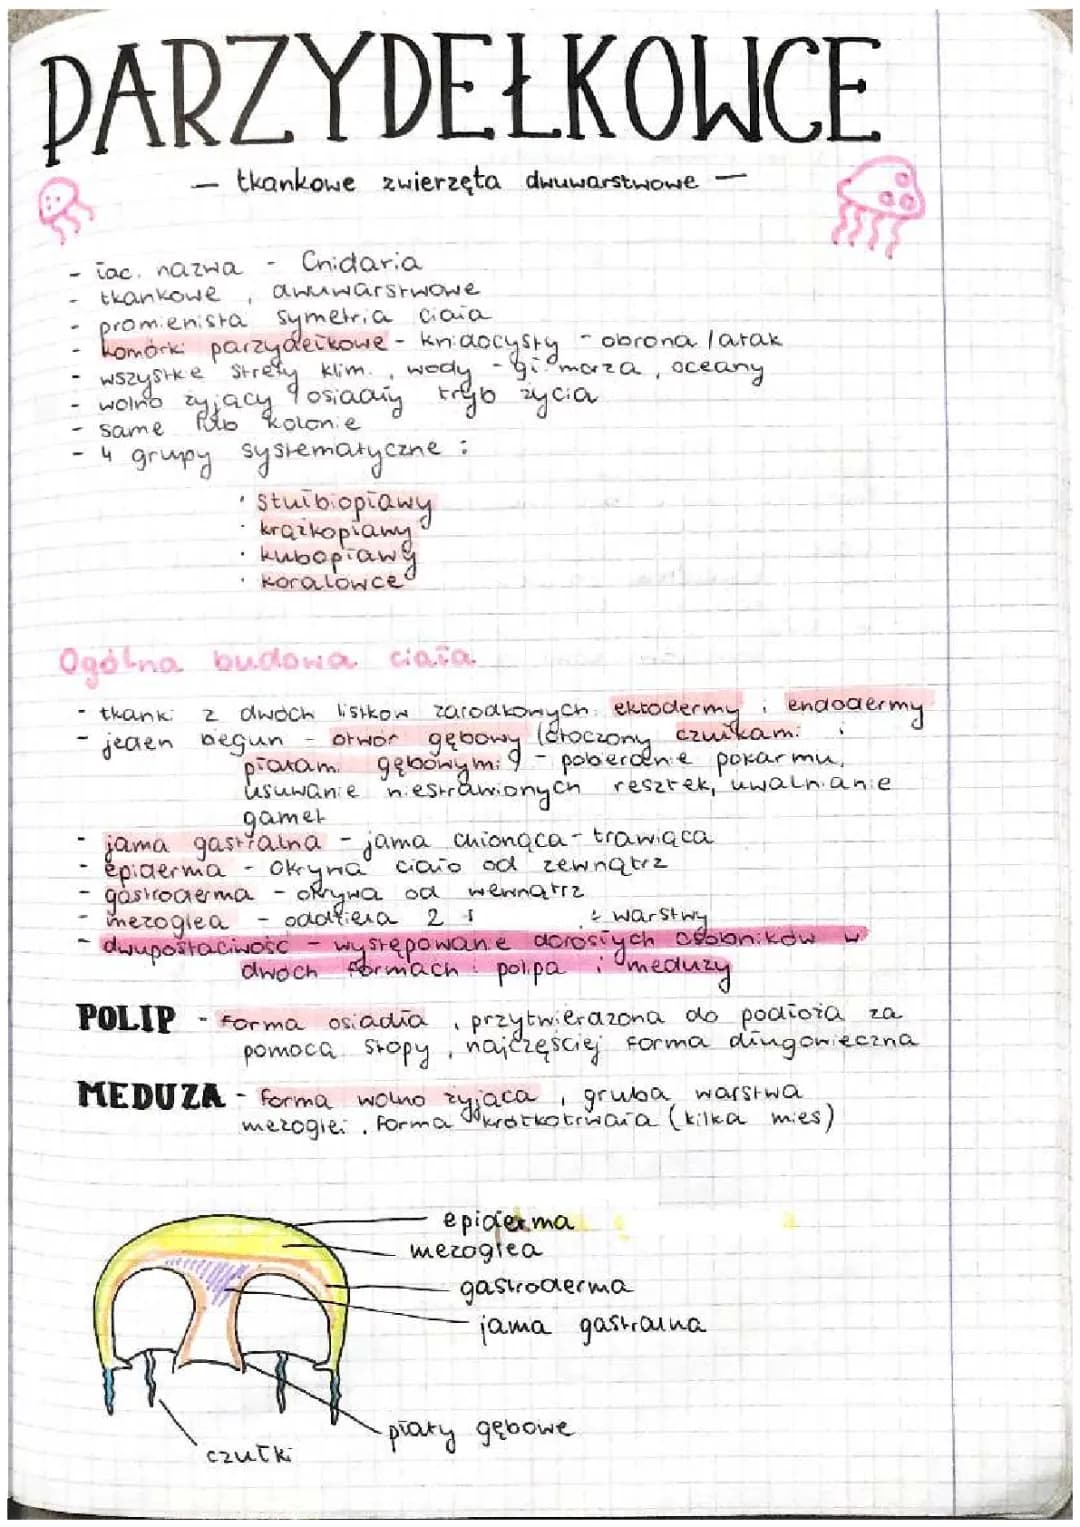 PARZYDEŁKOWCE
— tkankowe zwierzęta dwuwarstwowe —
- łac. nazwa - Cnidaria
- tkankowe, dwuwarstwowe
- promienista symetria ciała
- komórki parzydełkowe - knidocysty - obrona / atak
- wszystkie strefy klim., wody - gł. morza, oceany
- wolno żyjący / osiadły tryb życia
- same lub kolonie
- 4 grupy systematyczne :
· stułbiopławy
· krążkopławy
· kubopławy
· koralowce
Ogólna budowa ciała
- tkanki z dwóch listków zarodkowych: ektodermy i endodermy
- jeden biegun - otwór gębowy (otoczony czułkami i
płatami gębowymi) - pobieranie pokarmu,
usuwanie niestrawionych resztek, uwalnianie
gamet
- jama gastralna - jama chłonąca - trawiąca
- epiderma - okrywa ciało od zewnątrz
- gastroderma - okrywa od wewnątrz
- mezoglea - oddziela 2 warstwy
- dwupostaciwość - występowanie dorosłych osobników w
dwóch formach: polipa i meduzy
POLIP - forma osiadła, przytwierdzona do podłoża za
pomocą stopy, najczęściej forma długowieczna
MEDUZA - forma wolno żyjąca, gruba warstwa
mezoglei, forma krótkotrwała (kilka mies)
epiderma
mezoglea
gastroderma
jama gastralna
płaty gębowe
czułki